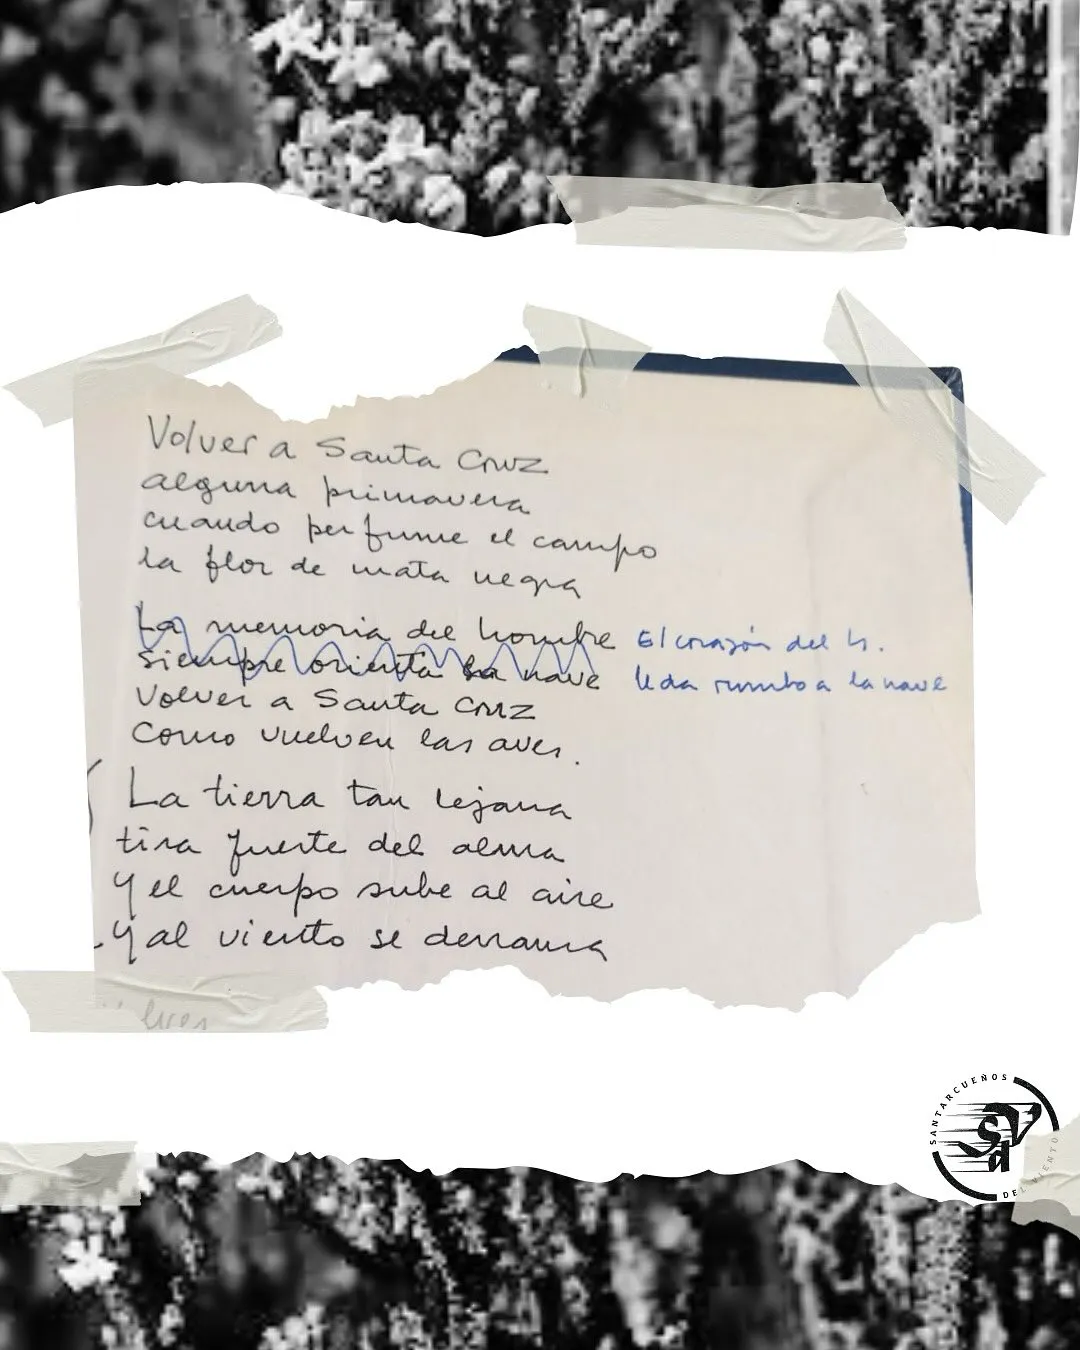 Volver a Santa Cruz
alguna primavera
cuando perfume el campo
la flor de mata negra
La memoria del hombre El corazón del h.
siempre orienta la nave le da rumbo a la nave
Volver a Santa Cruz
Como vuelven las aves.
La tierra tan lejana
tira fuerte del alma
Y el cuerpo sube al aire
Y al viento se derrama
SANTARCUEÑOS
SdV
DEL VIENTO